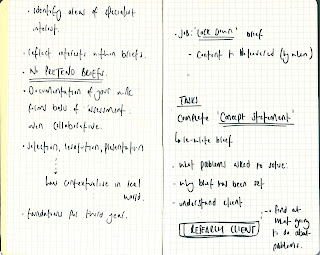 · identify areas of specialist
interest.
· reflect interests within briefs.
· NO PRETEND BRIEFS.
· Documentation of your work
forms basis of assessment.
non collaborative.
· selection, evaluation, presentation
how contextualise in real
world.
· foundations for third year.
· JOB: 'Lock Down' brief
- Content to be delivered (by when)
-
TASKS
Complete 'Concept Statement'
re-write brief
· what problems asked to solve.
· why brief has been set
· understand client
RESEARCH CLIENT
find out
what going
to do about
problems.